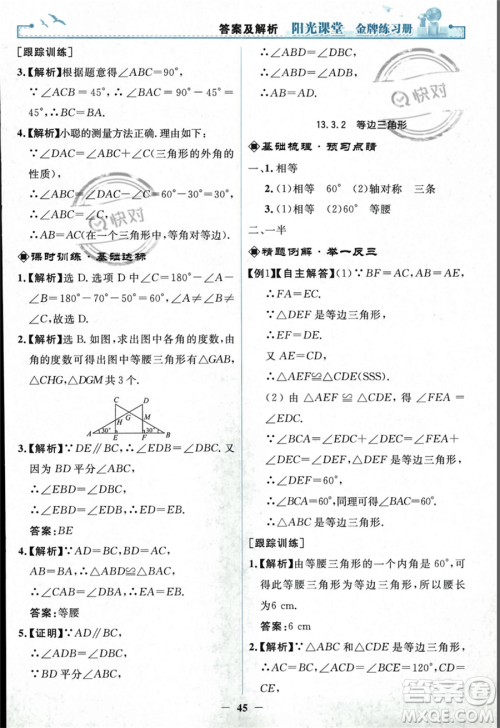 答案及解析 阳光课堂 金牌练习册
[跟踪训练]
3.【解析】根据题意得∠ABC=90°,
∵∠ACB=45°,∴∠BAC=90°-45°
=45°,∴AB=BC.
4.【解析】小聪的测量方法正确.理由如下:
∵∠DAC=∠B+∠C(三角形的外角的
性质),
∴∠C=∠DAC-∠B=60°-30°=30°,
∴∠B=∠C,
∴AB=AC(在一个三角形中,等角对
等边).
课时训练·基础达标
1.【解析】选 D. 选项 D 中∠C=180°-∠A
-∠B=180°-70°-50°=60°,∴∠A≠
∠B≠∠C,故选 D.
2.【解析】如图,求出图中各角的度数,由
角的度数可得出图中等腰三角形△GAB,
△CHG,△DGM共3个.
C D
H M
G
A 30° E F 30° B
3.【解析】∵DE∥BC,∴∠EDB=∠DBC,
又∵BD平分∠ABC,
∴∠EBD=∠DBC,
∴∠EBD=∠EDB,∴BE=DE.
答案:BE
4.【解析】∵AD=BC,AB=BD,
AB=BA.∴△ABC≌△BAD,
∴∠ABC=∠BAD,∴AE=BE.
答案:等腰
5.【证明】∵AD∥BC,∴∠ADB=∠DBC,
∵BD平分∠ABC,
∴∠ABD=∠DBC,
∴∠ABD=∠ADB,
∴AB=AD.
13.3.2 等边三角形
基础梳理·预习点睛
一、1.相等
2.(1)相等 60° (2)轴对称 三条
3.(1)相等 (2)60° 等腰
二、一半
精题例解·举一反三
[例1]【自主解答】(1)∵BF=AC,AB=AE,
∴FA=EC.
∵△DEF是等边三角形,
∴EF=DE.
又AE=CD,
∴△AEF≌△CDE(SSS).
(2)由△AEF≌△CDE,
得∠FEA=∠EDC,
∵△DEF是等边三角形,
∴∠DEF=60°,
∴∠BCA=60°,
同理可得∠BAC=60°.
∴△ABC是等边三角形.
[跟踪训练]
1.【解析】由等腰三角形的一个内角是60°,可
得此三角形是等边三角形,所以它的腰长
为6 cm.
答案:6 cm
2.【解析】∵△ABC、△BDE是等边三角形,
∴∠ACB=∠BED=60°,
∴∠ACD=∠BEC=120°,∠CAD+
45
快对
快对
答案圈